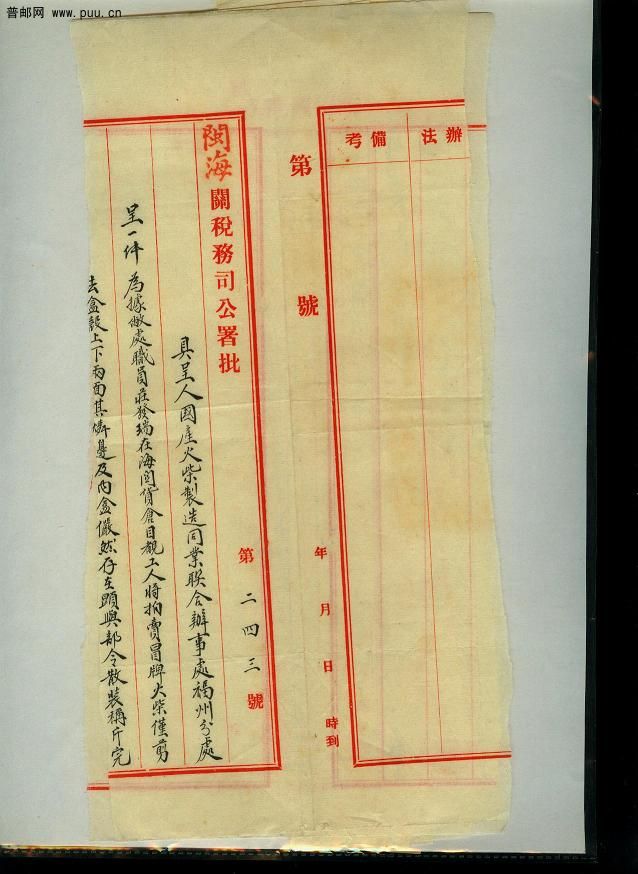 普邮网 www.puu.cn
辦法
備考
第 號
年 月 日 時到
閩海關稅務司公署批
第二四三號
具呈人國產火柴製造同業聯合辦事處福州分處
呈一件 為據敝處職員莊發瑞在海關貨倉目覩工人將拍賣冒牌火柴僅剪
去盒殼上下兩面其燐邊及內盒儼然存在顯與部令散裝稱斤完